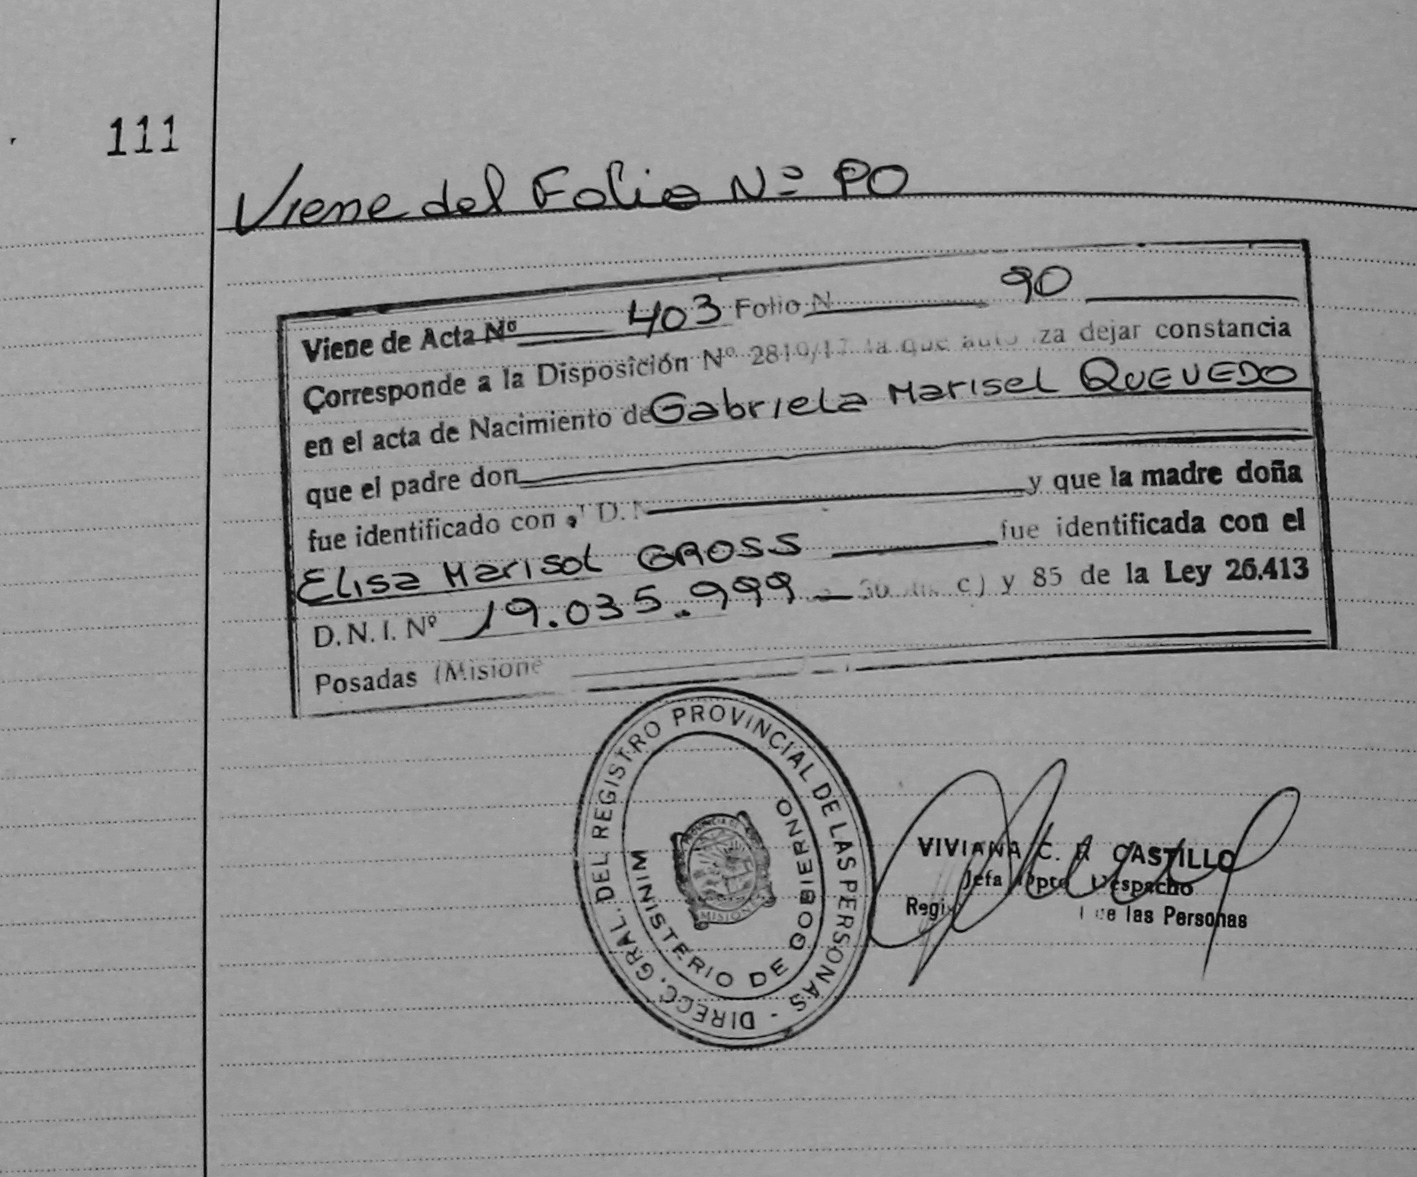 111
Viene del Folio Nº 90
Viene de Acta Nº 403 Folio N 90
Corresponde a la Disposición Nº 2810/17 la que autoriza dejar constancia
en el acta de Nacimiento de Gabriela Marisel QUEVEDO
que el padre don
fue identificado con D.N y que la madre doña
Elisa Marisol GROSS fue identificada con el
D.N.I. Nº 19.035.999 c) y 85 de la Ley 26.413
Posadas (Misione
DIRECC. GRAL. DEL REGISTRO PROVINCIAL DE LAS PERSONAS -
MINISTERIO DE GOBIERNO
PROVINCIA DE
MISIONES
VIVIANA C. CASTILLO
Jefa Dpto Despacho
Regi de las Personas